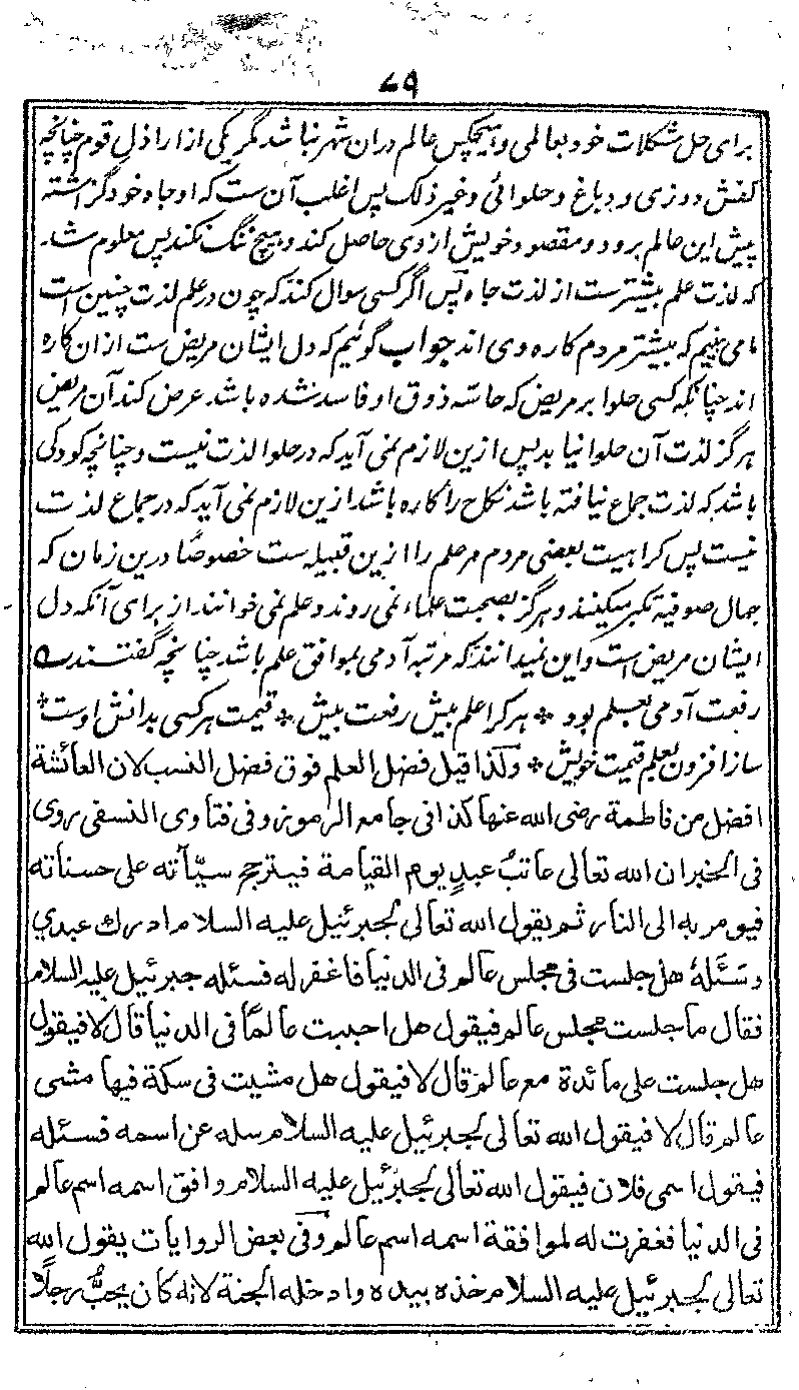 ٧٩
برای حل مشکلات خود بعالمی و هیچکس عالم دران شهر نباشد مگر یکی از اراذل قوم چنانچه
کفش دوزی و دباغ و حلوائی و غیر ذلک پس اغلب آن ست که او جاه خود گزاشته
پیش این عالم برود و مقصود خویش از وی حاصل کند و هیچ ننگ نکند پس معلوم شد
که لذت علم بیشتر ست از لذت جاه پس اگر کسی سوال کند که چون در علم لذت چنین است
ما می بینیم که بیشتر مردم کاره وی اند جواب گوئیم که دل ایشان مریض ست ازان کاره
اند چنانکه کسی حلوا بر مریض که حاسّه ذوق او فاسد شده باشد عرض کند آن مریض
هرگز لذت آن حلوا نیابد پس ازین لازم نمی آید که در حلوا لذت نیست و چنانچه کودکی
باشد که لذت جماع نیافته باشد نکاح را کاره باشد ازین لازم نمی آید که در جماع لذت
نیست پس کراهیت بعضی مردم مر علم را ازین قبیله ست خصوصًا درین زمان که
جهال صوفیه تکبر میکنند و هرگز بصحبت علماء نمی روند و علم نمی خوانند از برای آنکه دل
ایشان مریض است و این نمیدانند که مرتبه آدمی بموافق علم باشد چنانچه گفتند
رفعت آدمی بعلم بود * هر کرا علم بیش رفعت بیش * قیمت هر کسی بدانش اوست *
ساز افزون بعلم قیمت خویش * ولذا قیل فضل العلم فوق فضل النسب لان العائشة
افضل من فاطمة رضی الله عنها کذا فی جامع الرموز و فی فتاوی النسفی روی
فی الخبر ان الله تعالی عاتبُ عبدٍ یوم القیامة فیترجح سیّآته علی حسناته
فیومر به الی النار ثم یقول الله تعالی لجبرئیل علیه السلام ادرك عبدی
وسَئَلهُ هل جلست فی مجلس عالم فی الدنیا فاغفر له فسئله جبرئیل علیه السلام
فقال ما جلست مجلس عالم فیقول هل احببت عالمًا فی الدنیا قال لا فیقول
هل جلست علی مائدة مع عالم قال لا فیقول هل مشیت فی سکة فیها مشی
عالم قال لا فیقول الله تعالی لجبرئیل علیه السلام سله عن اسمه فسئله
فیقول اسمی فلان فیقول الله تعالی لجبرئیل علیه السلام وافق اسمه اسم عالم
فی الدنیا فغفرت له لموافقة اسمه اسم عالم وفی بعض الروایات یقول الله
تعالی لجبرئیل علیه السلام خذه بیده وادخله الجنة لانه کان یحبُّ رجلًا